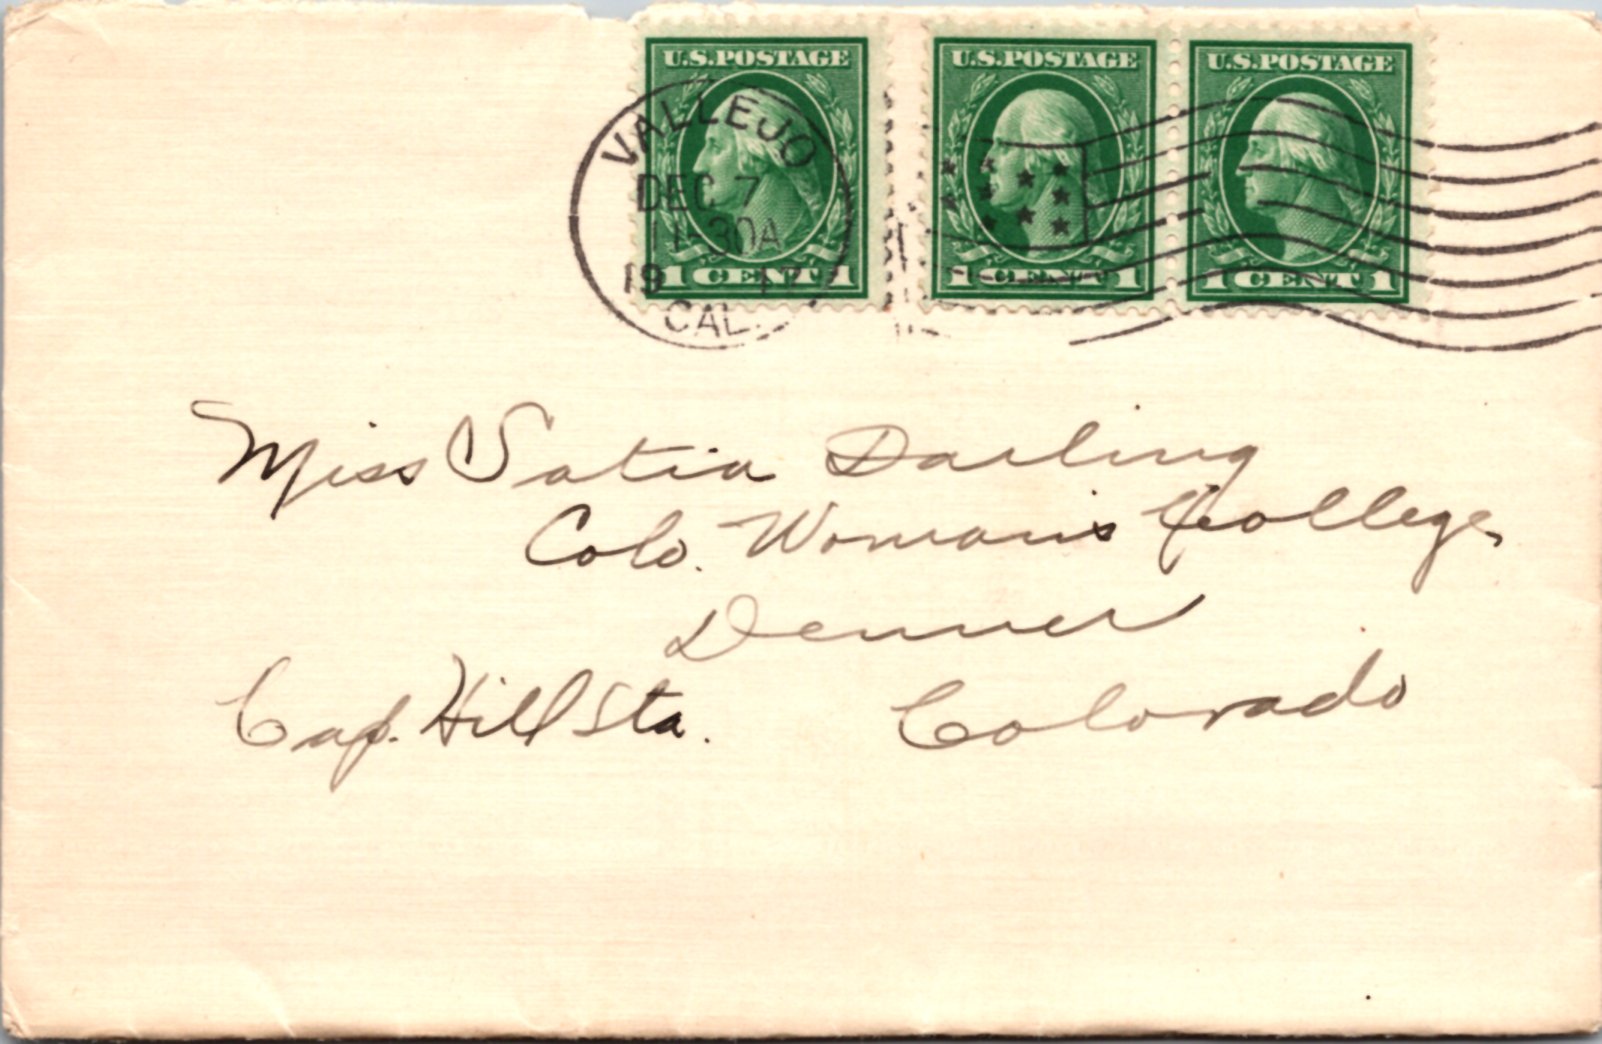 U.S. POSTAGE U.S. POSTAGE U.S. POSTAGE
1 CENT 1 1 CENT 1 1 CENT 1
VALLEJO
DEC 7
11-30A
19 17
CAL.
Miss Satia Darling
Colo. Woman's College,
Denver
Cap. Hill Sta. Colorado